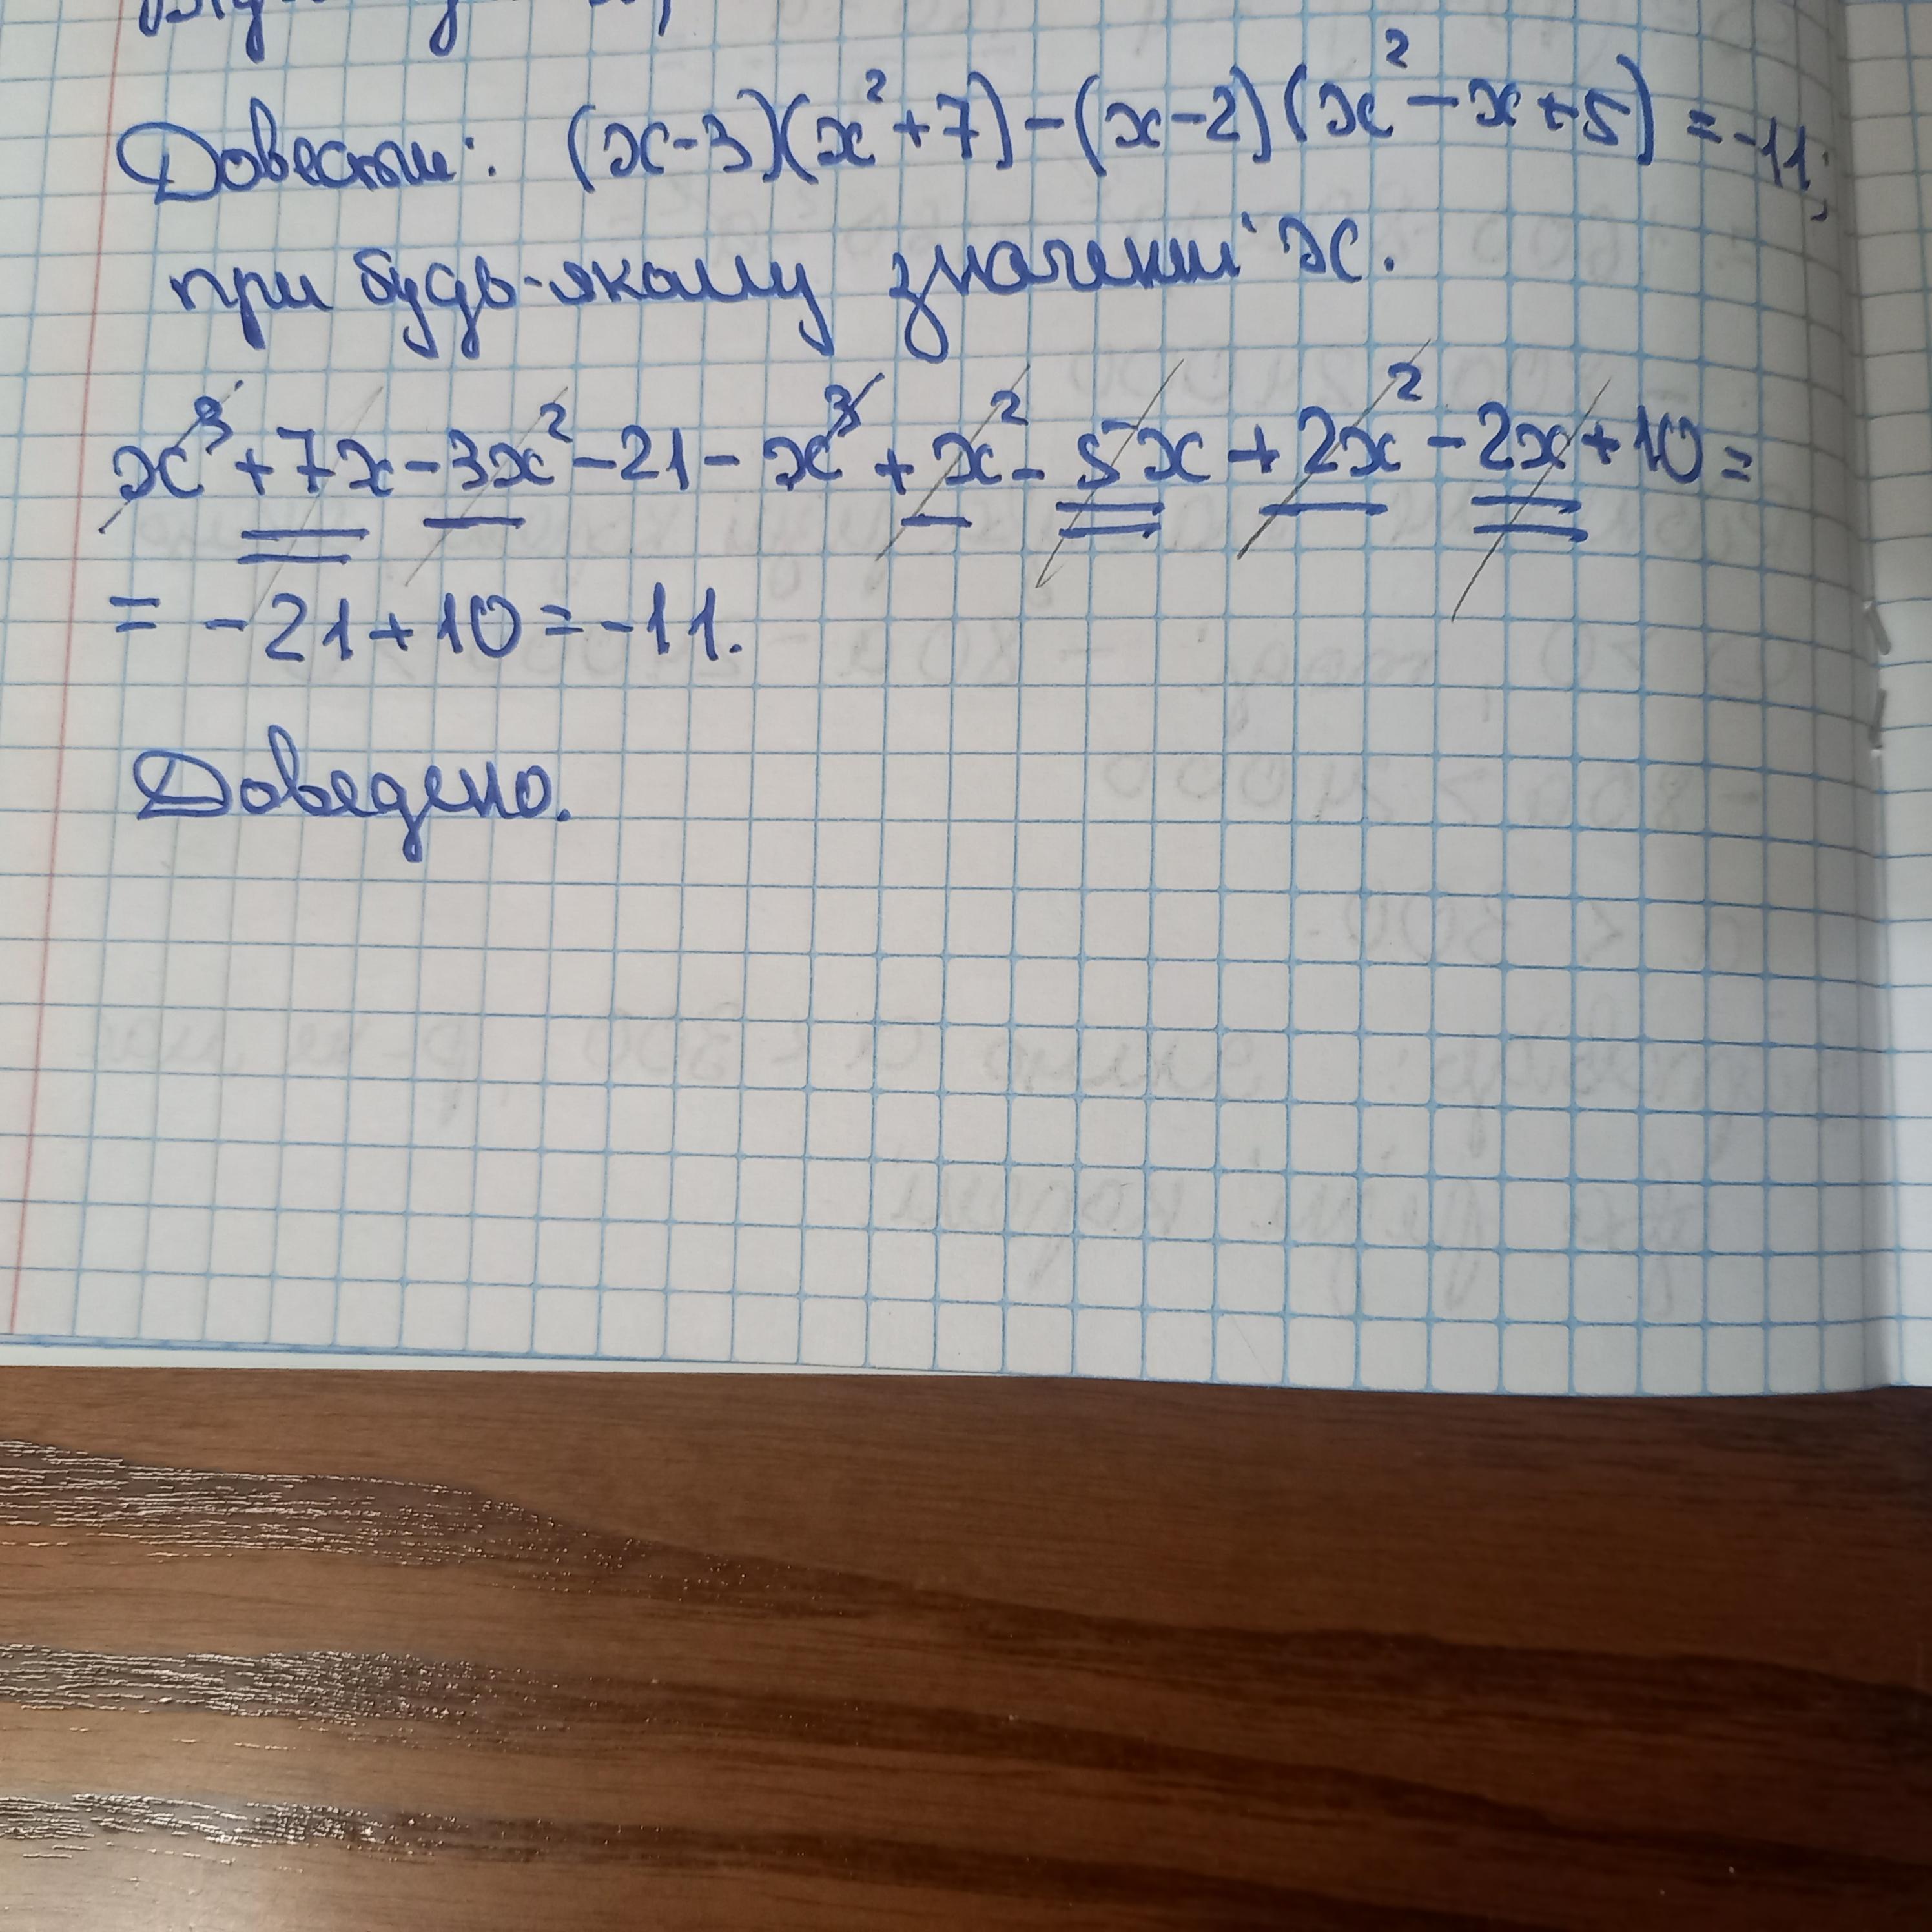 Довести: (x-3)(x²+7)-(x-2)(x²-x+5)=-11,
при будь-якому значенні x.
x³+7x-3x²-21-x³+x²-5x+2x²-2x+10=
=-21+10=-11.
Доведено.